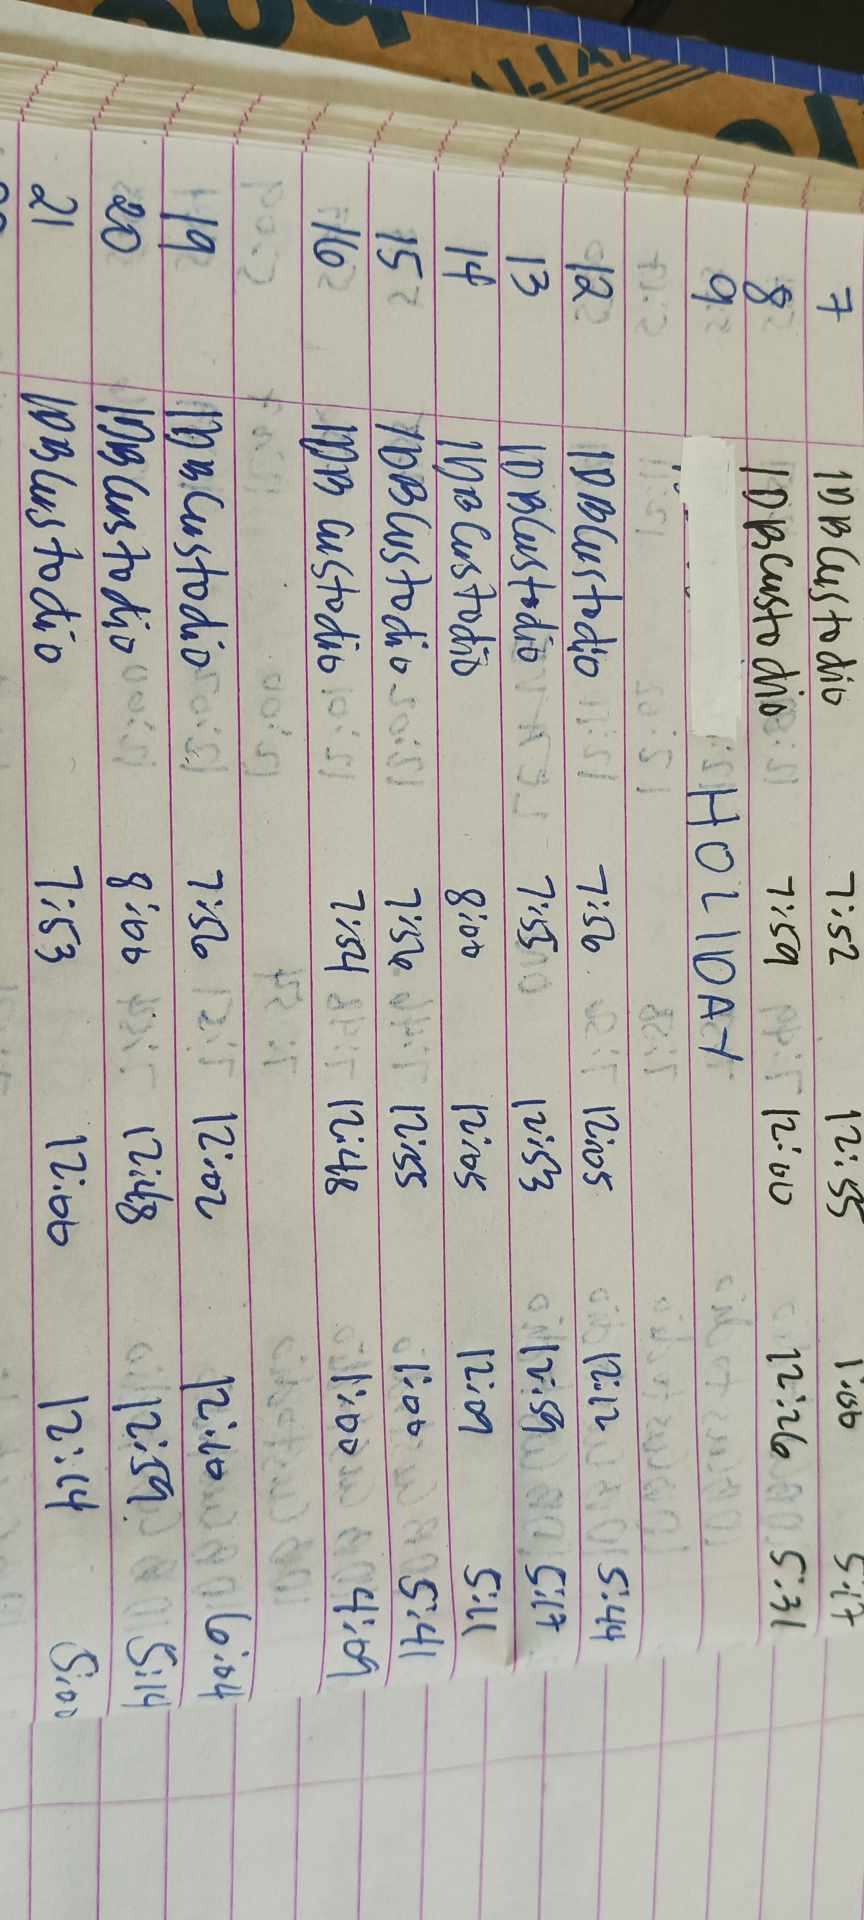 7 IDBCustodio 7:52 12:55 1:00 5:17
8 IDBCustodio 7:59 12:00 12:26 5:31
9 HOLIDAY
12 IDBCustodio 7:56 12:05 12:12 5:44
13 IDBCustodio 7:55 12:53 12:59 5:17
14 IDBCustodio 8:00 12:05 12:09 5:11
15 IDBCustodio 7:56 12:55 1:00 5:41
16 IDB Custodio 7:54 12:48 1:00 4:09
19 IDBCustodio 7:56 12:02 12:10 6:04
20 IDBCustodio 8:00 12:48 12:59 5:14
21 IDBCustodio 7:53 12:00 12:14 5:00